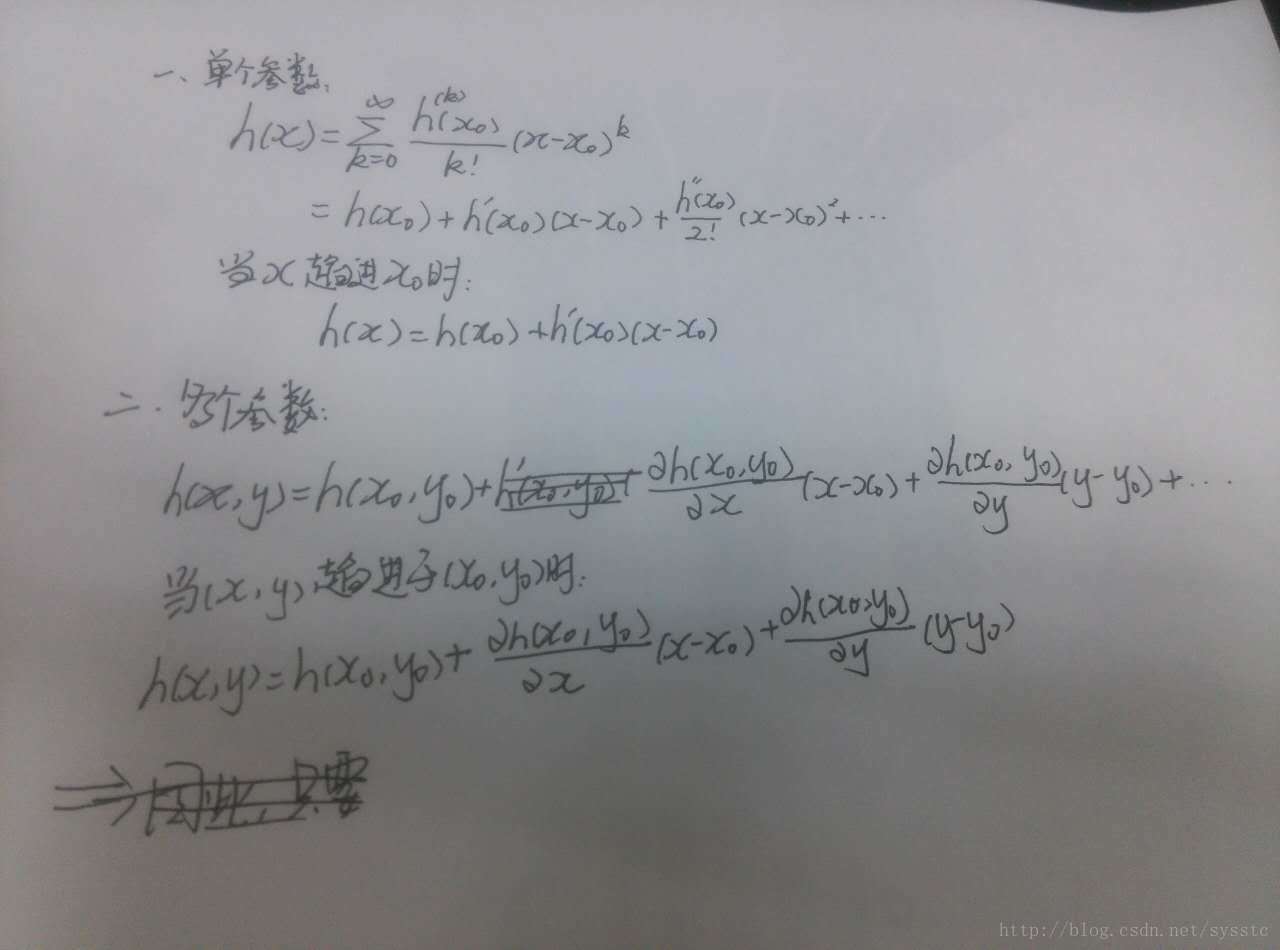 一、单个参数:
h(x)=∑_{k=0}^{∞} \frac{h^{(k)}(x₀)}{k!}(x-x₀)^k
=h(x₀)+h'(x₀)(x-x₀)+\frac{h''(x₀)}{2!}(x-x₀)²+...
当x趋进x₀时:
h(x)=h(x₀)+h'(x₀)(x-x₀)
二.多个参数:
h(x,y)=h(x₀,y₀)+\frac{∂h(x₀,y₀)}{∂x}(x-x₀)+\frac{∂h(x₀,y₀)}{∂y}(y-y₀)+...
当(x,y)趋进于(x₀,y₀)时:
h(x,y)=h(x₀,y₀)+\frac{∂h(x₀,y₀)}{∂x}(x-x₀)+\frac{∂h(x₀,y₀)}{∂y}(y-y₀)
⇒因此,只要
http://blog.csdn.net/sysstc